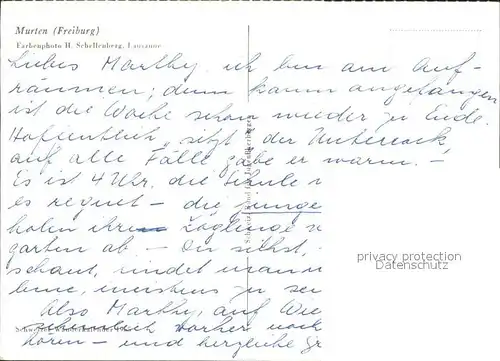 Murten (Freiburg)
Farbenphoto H. Schellenberg, Lausanne
Liebes Marthy, ich bin am Auf-
räumen; denn kaum angefangen
ist die Woche schon wieder zu Ende.
Hoffentlich sitzt der Unterrock,
auf alle Fälle gäbe er warm. –
Es ist 4 Uhr, die Schule
es regnet – die junge
holen ihre Zöglinge
garten ab – Du selbst,
schaut, findet man
meistens zu
Also Marthy, auf Wie
vorher noch
hören – und herzliche Gr
Schweizer. Bund für Jugendherbergen
privacy protection
Datenschutz